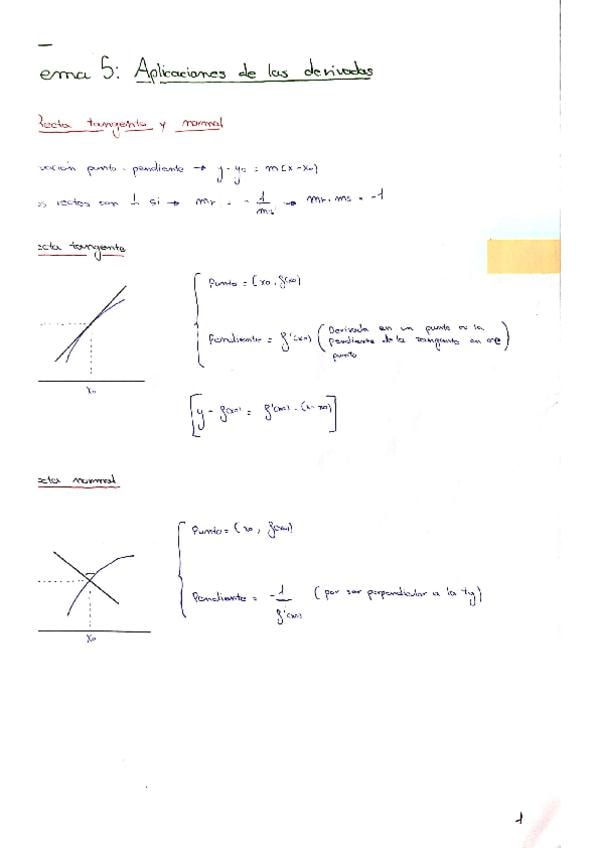 ema 5: Aplicaciones de las derivadas
Recta tangente y normal
uación punto-pendiente → y-y₀ = m(x-x₀)
os rectas son ⊥ si → mr = -1/ms → mr·ms = -1
ecta tangente
Punto = (x₀, f(x₀))
Pendiente = f'(x₀) (Derivada en un punto es la
pendiente de la tangente en ese
punto)
[y - f(x₀) = f'(x₀)·(x-x₀)]
x₀
ecta normal
Punto = (x₀, f(x₀))
Pendiente = -1/f'(x₀) (por ser perpendicular a la tg)
x₀
1